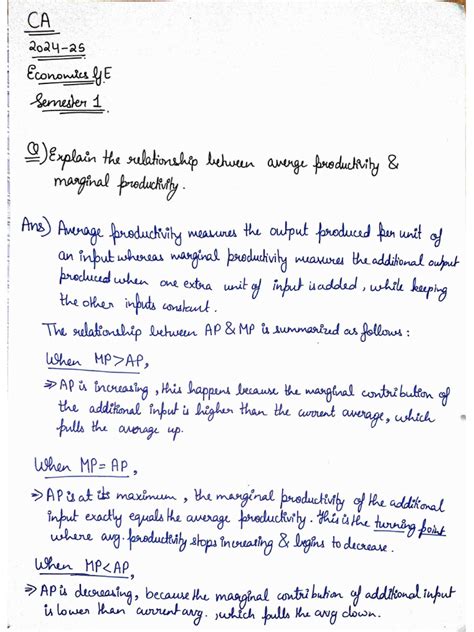 CA
2024-25
Economics GE
Semester 1
Q) Explain the relationship between averge productivity &
marginal productivity.
Ans) Average productivity measures the output produced per unit of
an input whereas marginal productivity measures the additional output
produced when one extra unit of input is added, while keeping
the other inputs constant.
The relationship between AP & MP is summarized as follows:
When MP>AP,
⇒ AP is increasing, this happens because the marginal contribution of
the additional input is higher than the current average, which
pulls the average up.
When MP=AP,
⇒ AP is at its maximum, the marginal productivity of the additional
input exactly equals the average productivity. This is the turning point
where avg. productivity stops increasing & begins to decrease.
When MP<AP,
⇒ AP is decreasing, because the marginal contribution of additional input
is lower than current avg., which pulls the avg down.